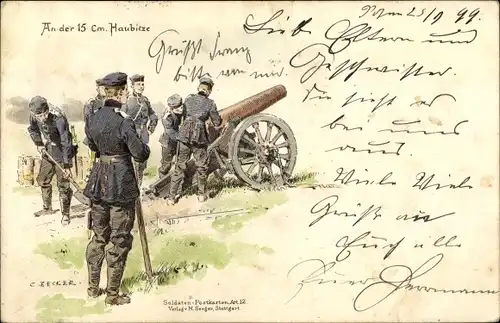 An der 15 cm. Haubitze
25/9 99.
Grüßt Franz
bitte von mir.
Liebe Eltern und
Geschwister.
So sieht es
bei uns
aus.
Viele Viele
Grüße an
Euch alle
Euer Herrmann
C. BECKER.
Soldaten-Postkarten, Art. 12.
Verlag v. H. Seeger, Stuttgart